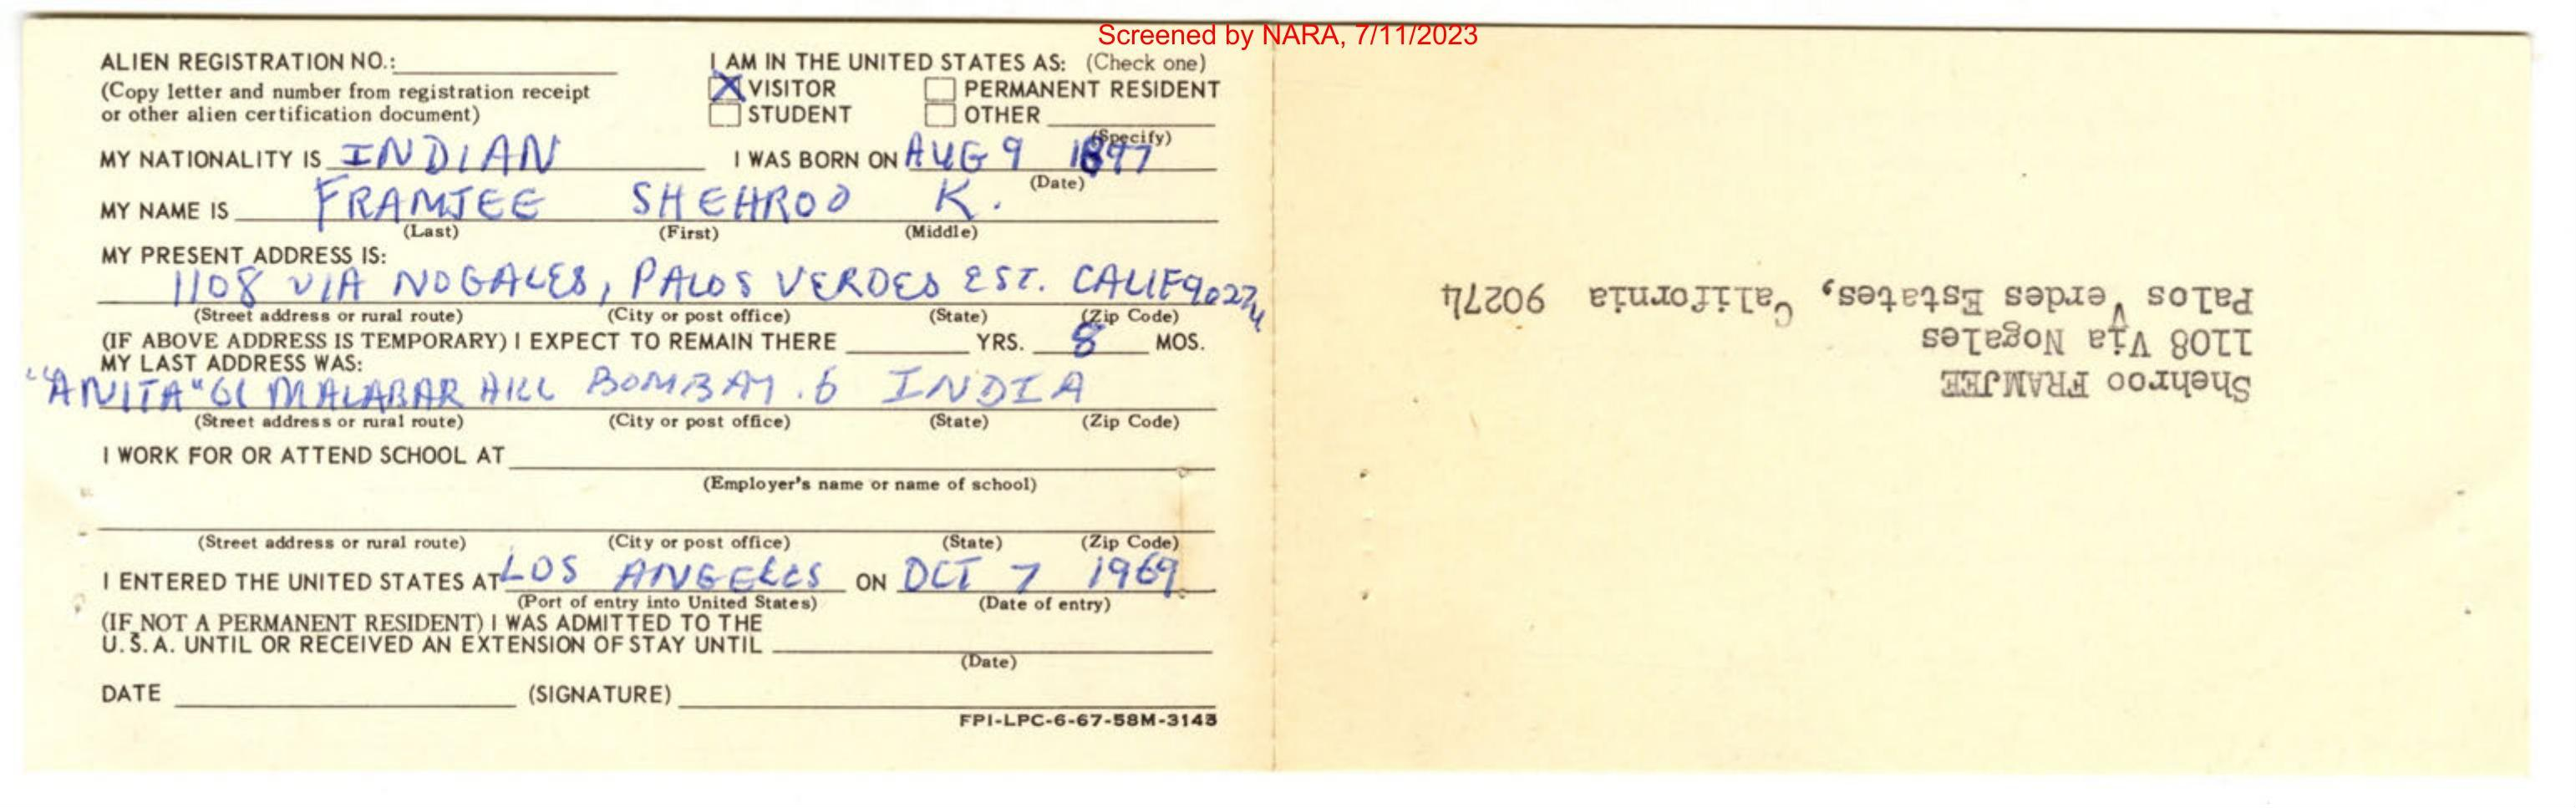 Screened by NARA, 7/11/2023
ALIEN REGISTRATION NO.:
(Copy letter and number from registration receipt
or other alien certification document)
I AM IN THE UNITED STATES AS: (Check one)
X VISITOR PERMANENT RESIDENT
STUDENT OTHER
(Specify)
MY NATIONALITY IS INDIAN I WAS BORN ON AUG 9 1897
(Date)
MY NAME IS FRAMJEE SHEHROO K.
(Last) (First) (Middle)
MY PRESENT ADDRESS IS:
1108 VIA NOGALES, PALOS VERDES EST. CALIF 90274
(Street address or rural route) (City or post office) (State) (Zip Code)
(IF ABOVE ADDRESS IS TEMPORARY) I EXPECT TO REMAIN THERE YRS. 8 MOS.
MY LAST ADDRESS WAS:
"ANITA" 61 MALABAR HILL BOMBAY.6 INDIA
(Street address or rural route) (City or post office) (State) (Zip Code)
I WORK FOR OR ATTEND SCHOOL AT
(Employer's name or name of school)
(Street address or rural route) (City or post office) (State) (Zip Code)
I ENTERED THE UNITED STATES AT LOS ANGELES ON OCT 7 1969
(Port of entry into United States) (Date of entry)
(IF NOT A PERMANENT RESIDENT) I WAS ADMITTED TO THE
U.S.A. UNTIL OR RECEIVED AN EXTENSION OF STAY UNTIL
(Date)
DATE (SIGNATURE)
FPI-LPC-6-67-58M-3143
Shehroo FRAMJEE
1108 Via Nogales
Palos Verdes Estates, California 90274